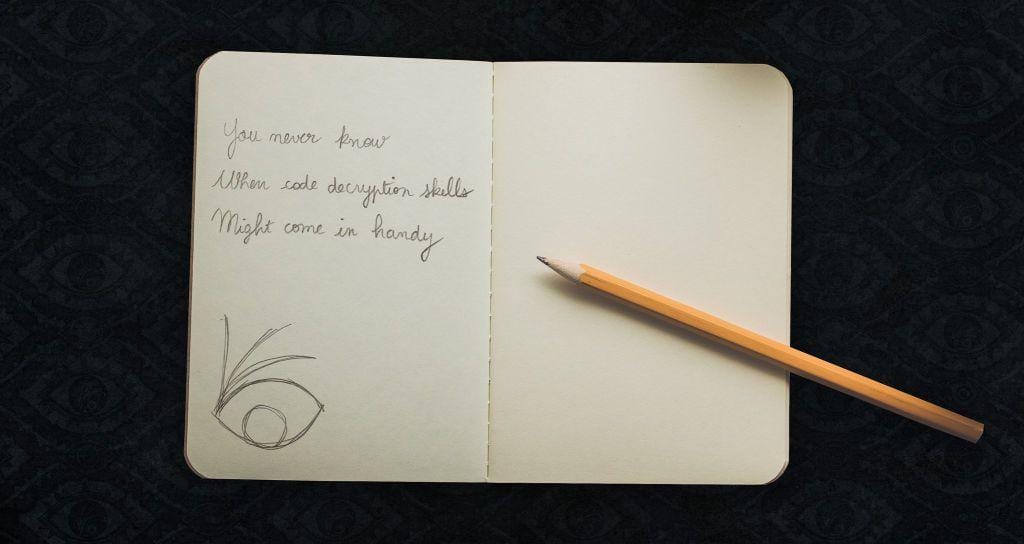 You never know
When code decryption skills
Might come in handy